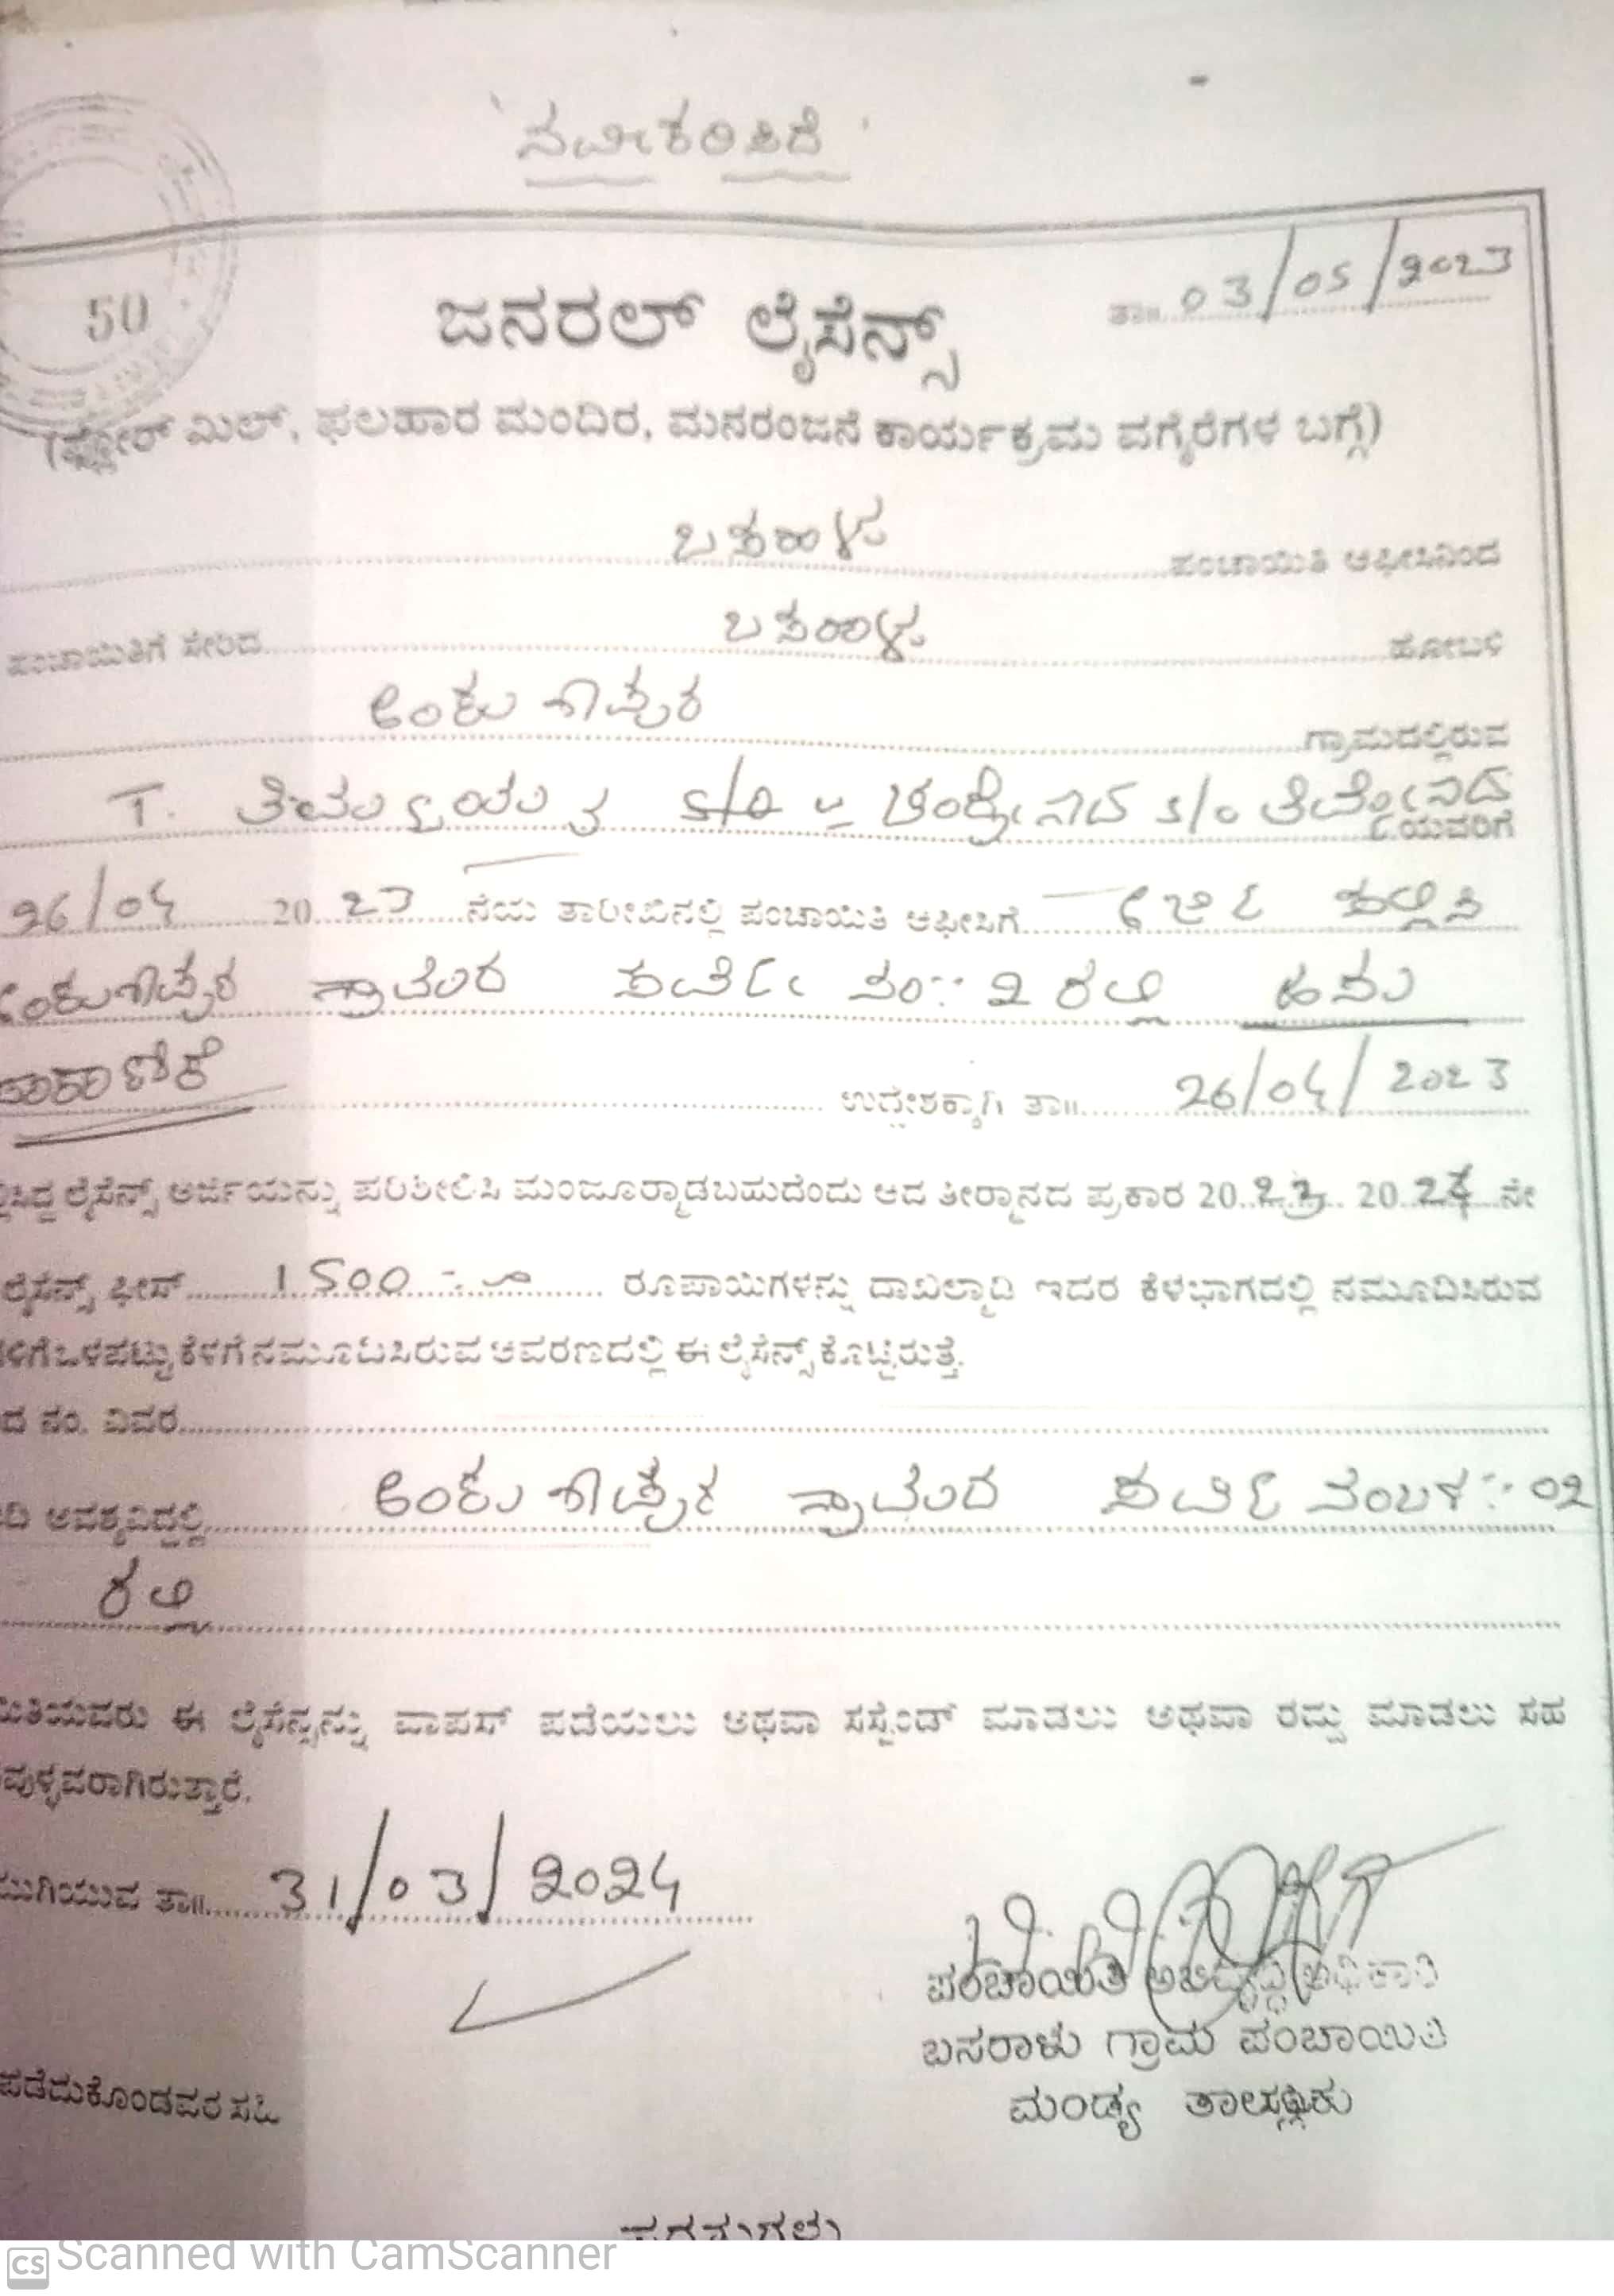 ನವೀಕರಿಸಿದೆ
50
ಜನರಲ್ ಲೈಸೆನ್ಸ್
ತಾ॥ 03/05/2023
(ಫ್ಲೋರ್ ಮಿಲ್, ಫಲಹಾರ ಮಂದಿರ, ಮನರಂಜನೆ ಕಾರ್ಯಕ್ರಮ ವಗೈರೆಗಳ ಬಗ್ಗೆ)
ಬಸರಾಳು ಪಂಚಾಯಿತಿ ಆಫೀಸಿನಿಂದ
ಪಂಚಾಯಿತಿಗೆ ಸೇರಿದ ಬಸರಾಳು ಹೋಬಳಿ
ಅಂಕುಶಾಪುರ ಗ್ರಾಮದಲ್ಲಿರುವ
T. S/o ಯವರಿಗೆ
26/04 2023 ನೆಯ ತಾರೀಖಿನಲ್ಲಿ ಪಂಚಾಯಿತಿ ಆಫೀಸಿಗೆ ಅರ್ಜಿ ಸಲ್ಲಿಸಿ
ಅಂಕುಶಾಪುರ ಗ್ರಾಮದ ಸರ್ವೆ ನಂ: 2 ರಲ್ಲಿ ಹಸು
ಸಾಕಾಣಿಕೆ ಉದ್ದೇಶಕ್ಕಾಗಿ ತಾ॥ 26/04/2023
ಲೈಸೆನ್ಸ್ ಅರ್ಜಿಯನ್ನು ಪರಿಶೀಲಿಸಿ ಮಂಜೂರ್ಮಾಡಬಹುದೆಂದು ಆದ ತೀರ್ಮಾನದ ಪ್ರಕಾರ 2023 2024 ನೇ
ಲೈಸೆನ್ಸ್ ಫೀಸ್ 1500 ರೂಪಾಯಿಗಳನ್ನು ದಾಖಲ್ಮಾಡಿ ಇದರ ಕೆಳಭಾಗದಲ್ಲಿ ನಮೂದಿಸಿರುವ
ಳಿಗೆ ಒಳಪಟ್ಟು ಕೆಳಗೆ ನಮೂದಿಸಿರುವ ಆವರಣದಲ್ಲಿ ಈ ಲೈಸೆನ್ಸ್ ಕೊಟ್ಟಿರುತ್ತೆ.
ದ ನಂ. ವಿವರ
ದಿ ಅವಶ್ಯವಿದ್ದಲ್ಲಿ ಅಂಕುಶಾಪುರ ಗ್ರಾಮದ ಸರ್ವೆ ನಂಬರ್: 02
ರಲ್ಲಿ
ಯಿತಿಯವರು ಈ ಲೈಸೆನ್ಸನ್ನು ವಾಪಸ್ ಪಡೆಯಲು ಅಥವಾ ಸಸ್ಪೆಂಡ್ ಮಾಡಲು ಅಥವಾ ರದ್ದು ಮಾಡಲು ಸಹ
ವುಳ್ಳವರಾಗಿರುತ್ತಾರೆ.
ಮುಗಿಯುವ ತಾ॥ 31/03/2024
ಪಂಚಾಯಿತಿ ಅಭಿವೃದ್ಧಿ ಅಧಿಕಾರಿ
ಬಸರಾಳು ಗ್ರಾಮ ಪಂಚಾಯಿತಿ
ಮಂಡ್ಯ ತಾಲ್ಲೂಕು
ಪಡೆದುಕೊಂಡವರ ಸಹಿ
CS Scanned with CamScanner